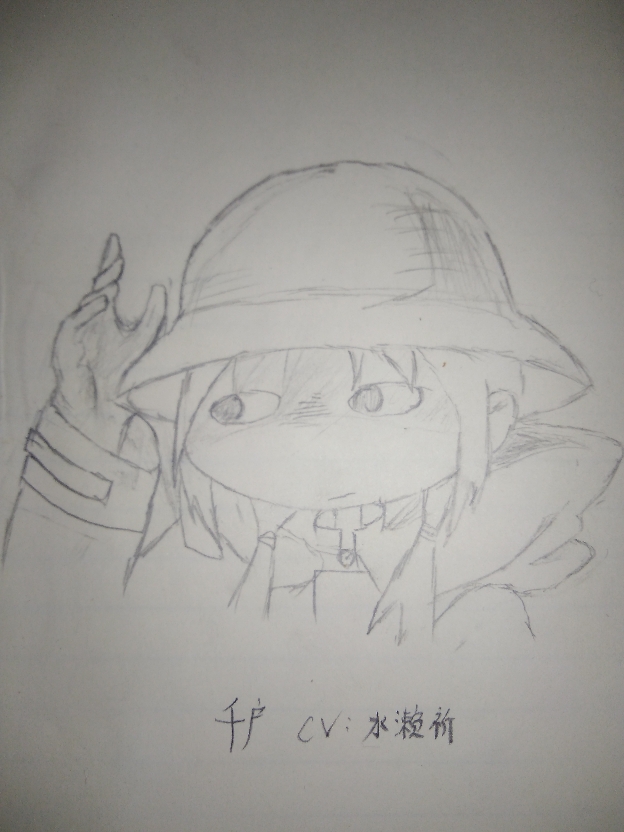 千户 CV:水濑祈